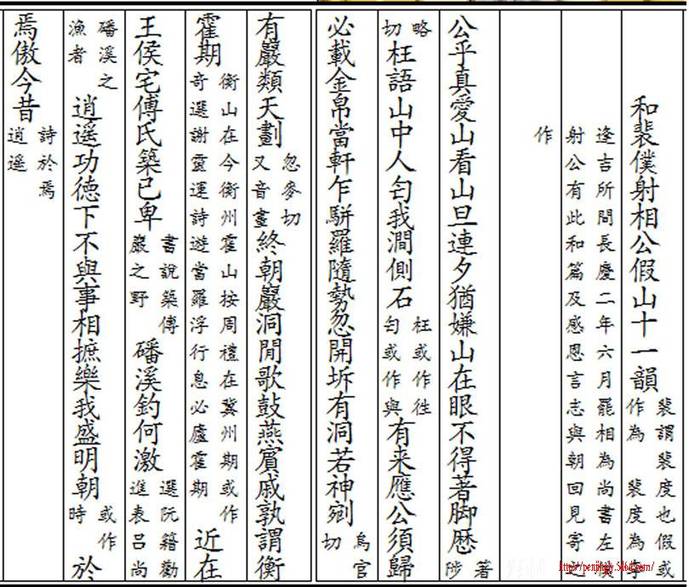 和裴僕射相公假山十一韻裴謂裴度也假或作為　裴度為李
逢吉所間長慶二年六月罷相為尚書左僕射公有此和篇及感恩言志與朝回見寄之
作
公乎真愛山看山旦連夕猶嫌山在眼不得著脚歷著陟
略切枉語山中人匄我澗側石枉或作徃匄或作與有来應公須歸
必載金帛當軒乍駢羅隨勢忽開坼有洞若神剜烏官切
有巖類天劃忽麥切又音畫終朝巖洞間歌鼓燕賓戚孰謂衡
霍期衡山在今衡州霍山按周禮在冀州期或作奇選謝靈運詩遊當羅浮行息必廬霍期近在
王侯宅傅氏築已卑書說築傅巖之野磻溪釣何激選阮籍勸進表呂尚
磻溪之漁者逍遥功德下不與事相摭樂我盛明朝或作時於
焉傲今昔詩於焉逍遥